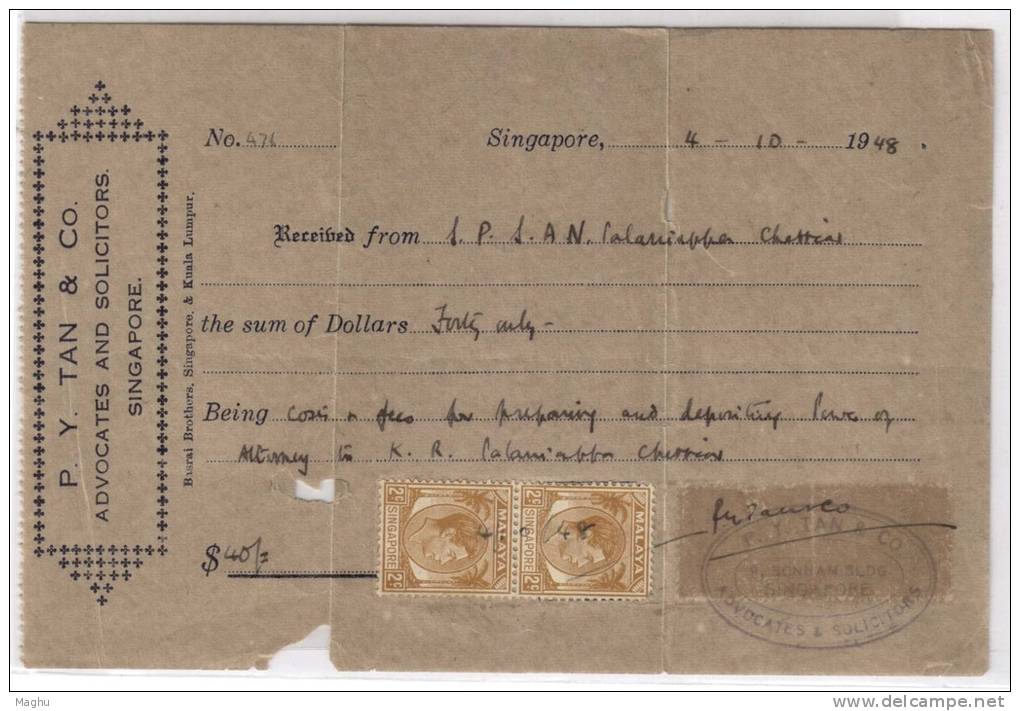 P. Y. TAN & CO.
ADVOCATES AND SOLICITORS.
SINGAPORE.
Busrai Brothers, Singapore, & Kuala Lumpur.
No. 476
Singapore, 4 - 10 - 1948.
Received from S. P. S. A N. Palaniappa Chettiar
the sum of Dollars Forty only -
Being costs & fees for preparing and depositing Power of
Attorney to K. R. Palaniappa Chettiar
$ 40/-
MALAYA
SINGAPORE
2c 2c
MALAYA
SINGAPORE
2c 2c
4 48
P. Y. TAN & CO
BONHAM BLDG
SINGAPORE
ADVOCATES & SOLICITORS
Maghu
www.delcampe.net